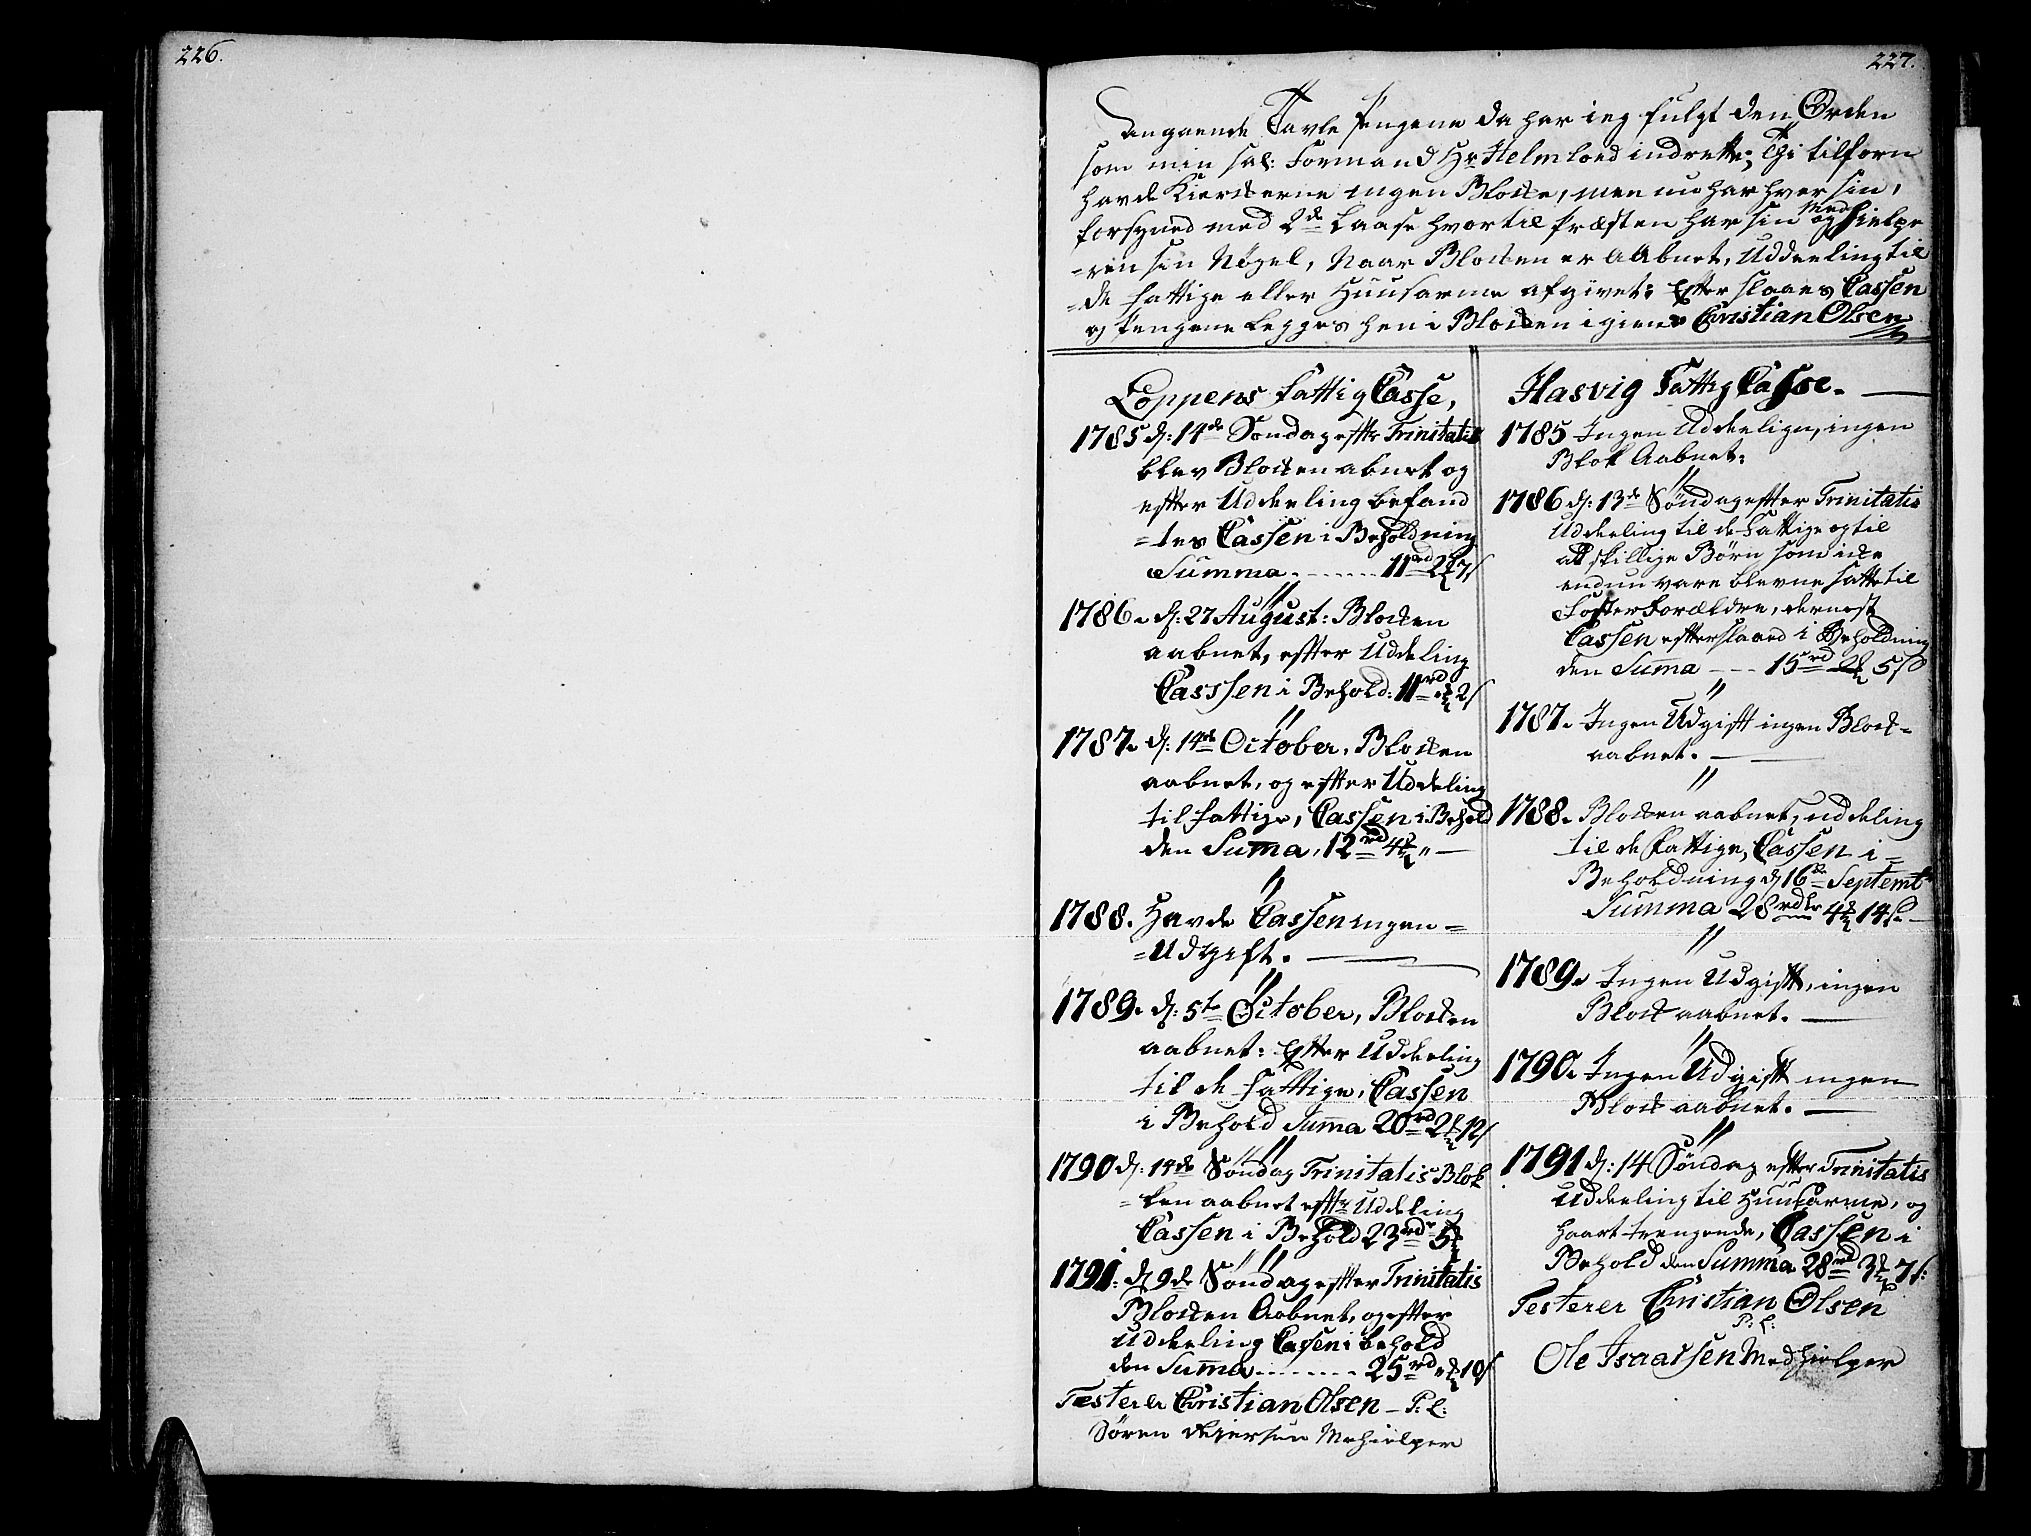 226.
227.
Angaaende Tavle Pengene da har ieg fulgt den Orden
som min sal: Formand Hr Helm loed indrette; Thi tilforn
havde Kierkerne ingen Blokke, men nu har hver sin,
forsyned med 2de Laase hvortil Præsten har sin og Medhielpe
=ren sin Nøgel, Naar Blokken er aabnet, Uddeeling til
=de fattige eller Huusarme afgivet; Efter slaaes Cassen
og Pengene legges hen i Blokken igien. Christian Olsen
Loppens fattig Casse,
1785 d: 14de Søndag efter Trinitatis
blev Blokken abnet og
efter Uddeeling befand
=tes Cassen i Beholdning
Summa . . . . . . . 11rd 2 7s
1786. d: 27 August: Blokken
aabnet, efter Uddeling
Casssen i Behold: 11rd 2s
1787. d: 14de October, Blokken
aabnet, og efter Uddeling
til fattige, Cassen i Behold
den Suma, 12rd 4 "
1788. Havde Cassen ingen =
=Udgift.
1789. d: 5te October, Blokken
aabnet: Efter Uddeeling
til de fattige, Cassen
i Behold Suma 20rd 2 12s
1790 d: 14de Søndag Trinitatis Blok
=ken aabnet efter Uddeling
Cassen i Behold 23rdr 5
1791: d 9de Søndag efter Trinitatis
Blokken Aabnet, og efter
Uddeeling Cassen i behold
den Suma . . . . . . . 25rd " 10s
Testerer Christian Olsen – P: L:
Sören Mehielper
Hasvig Fattig Casse.
1785 Ingen Uddeelign, ingen
Blok Aabnet:
1786 d: 13de Søndag efter Trinitatis
Uddeeling til de Fattige og til
att skillige Børn som icke
endnu vare blevne satte til
Foster Forældre, dernest
Cassen efterslaaed i Beholdning
den Suma – – – 15rd 2 5s
1787. Ingen Udgift ingen Block =
aabnet.
1788. Blokken aabnet, uddeling
til de Fattige, Cassen i =
Beholdning d 16de Septembr
Summa 28rdlr 4 14s.
1789. Ingen Udgift, ingen
Block aabnet.
1790. Ingen Udgift ingen
Block aabnet.
1791 d: 14 Søndag efter Trinitatis
Uddeeling til Huusarme, og
haart trengende, Cassen i
Behold den Summa 28rd 3 7s:
Testerer Christian Olsen
P: L:
Ole Isaacsen Medhielper